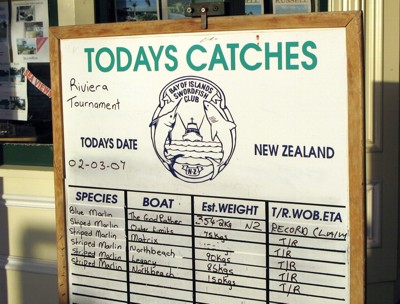 TODAYS CATCHES
Riviera
Tournament
BAY OF ISLANDS
SWORDFISH
CLUB
N.Z
TODAYS DATE
NEW ZEALAND
02-03-07
SPECIES BOAT Est.WEIGHT T/R.WOB.ETA
Blue Marlin The Godfather 354.2kg NZ RECORD CLAIM
Striped Marlin Outer Limits 75kgs T/R
Striped Marlin Matrix T/R
Striped Marlin Northbeach 90kgs T/R
Striped Marlin Legacy 85kgs T/R
Striped Marlin Northbeach T/R